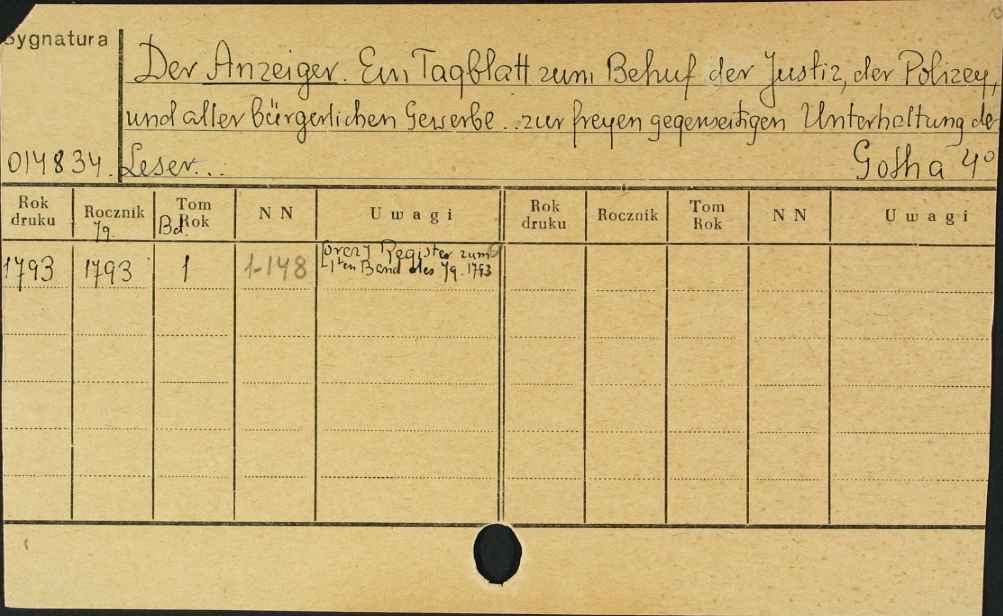 Sygnatura
Der Anzeiger. Ein Tagblatt zum Behuf der Justiz, der Polizey,
und aller bürgerlichen Gewerbe... zur freyen gegenseitigen Unterhaltung der
014834. Leser... Gotha 4°
Rok druku Rocznik Tom Rok N N Uwagi Rok druku Rocznik Tom Rok N N Uwagi
Jg. Bd.
1793 1793 1 1-148 oraz Register zum
1ten Band des Jg. 1793